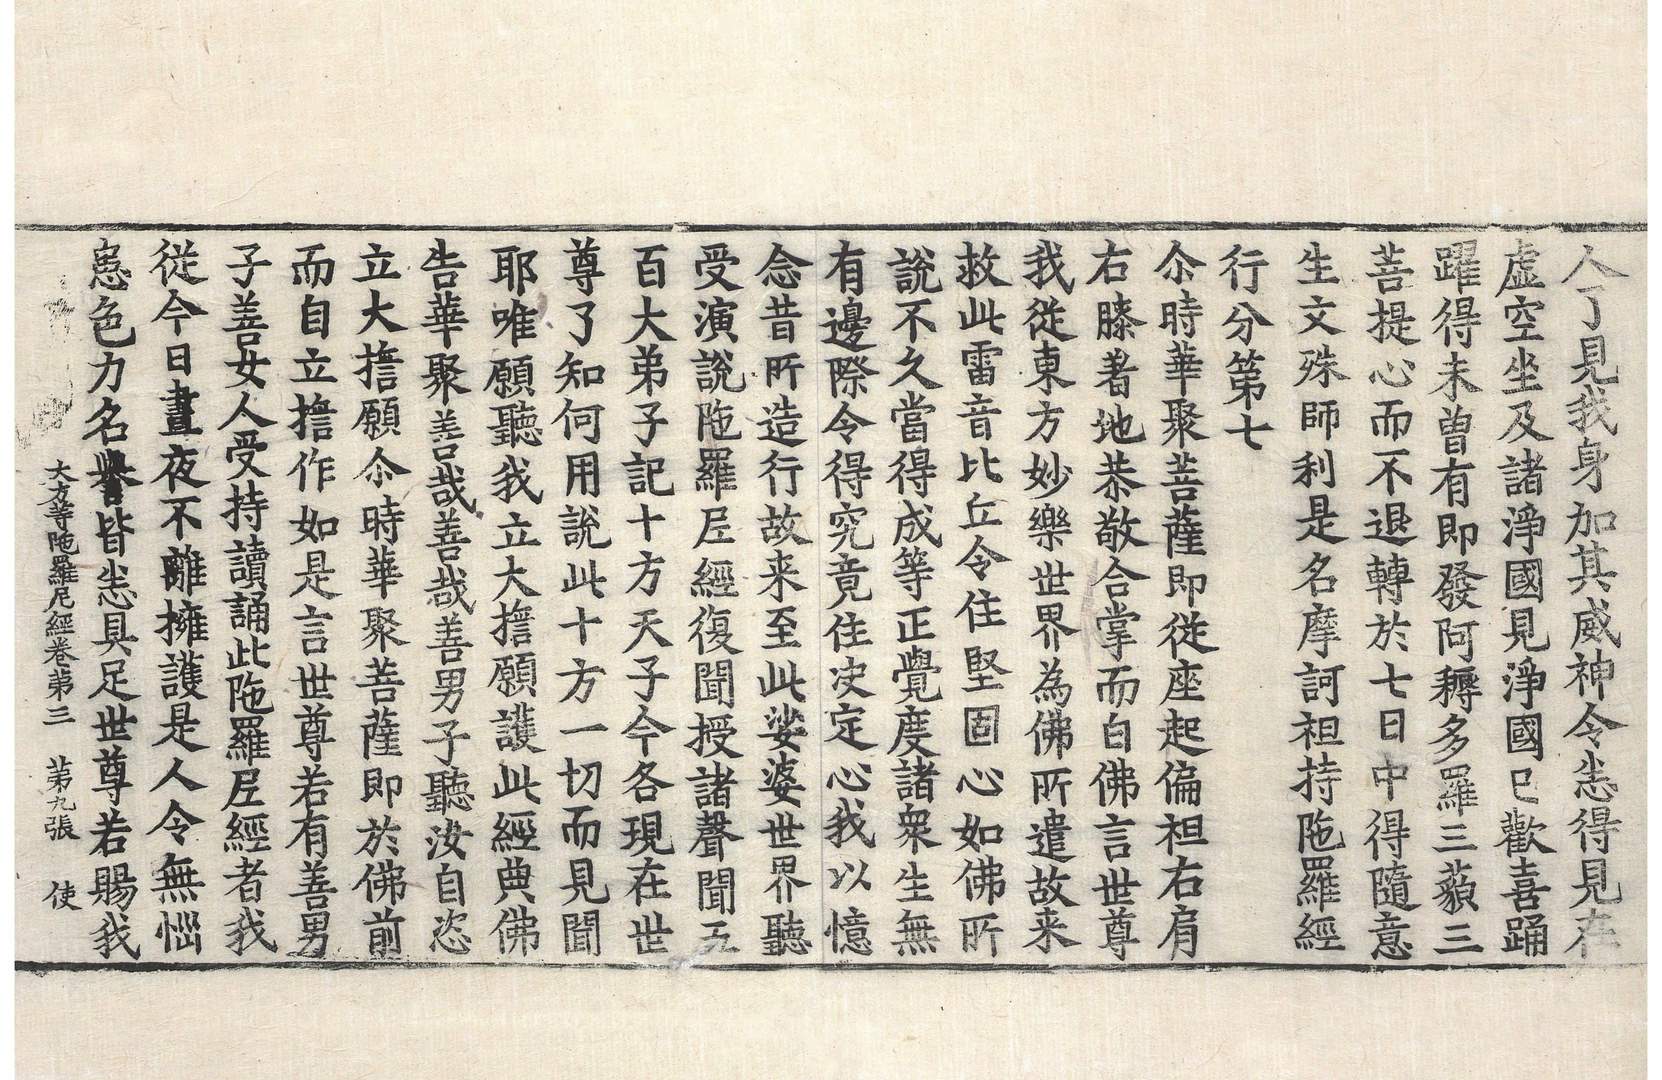 人了見我身加其威神令悉得見在
虛空坐及諸淨國見淨國已歡喜踊
躍得未曾有即發阿耨多羅三藐三
菩提心而不退轉於七日中得隨意
生文殊師利是名摩訶袒持陁羅經
行分第七
尒時華聚菩薩即從座起偏袒右肩
右膝著地恭敬合掌而白佛言世尊
我従東方妙樂世界為佛所遣故来
救此雷音比丘令住堅固心如佛所
說不久當得成等正覺度諸衆生無
有邊際令得究竟住决定心我以憶
念昔所造行故来至此娑婆世界聽
受演說陁羅𡰱經復聞授諸聲聞五
百大弟子記十方天子今各現在世
尊了知何用說此十方一切而見聞
耶唯願聽我立大擔願護此經典佛
告華聚善哉善哉善男子聽汝自恣
立大擔願尒時華聚菩薩即於佛前
而自立擔作如是言世尊若有善男
子善女人受持讀誦此陁羅𡰱經者我
從今日晝夜不離擁護是人令無惱
患色力名譽皆悉具足世尊若賜我
大方等陁羅尼經卷第三 第九張 使